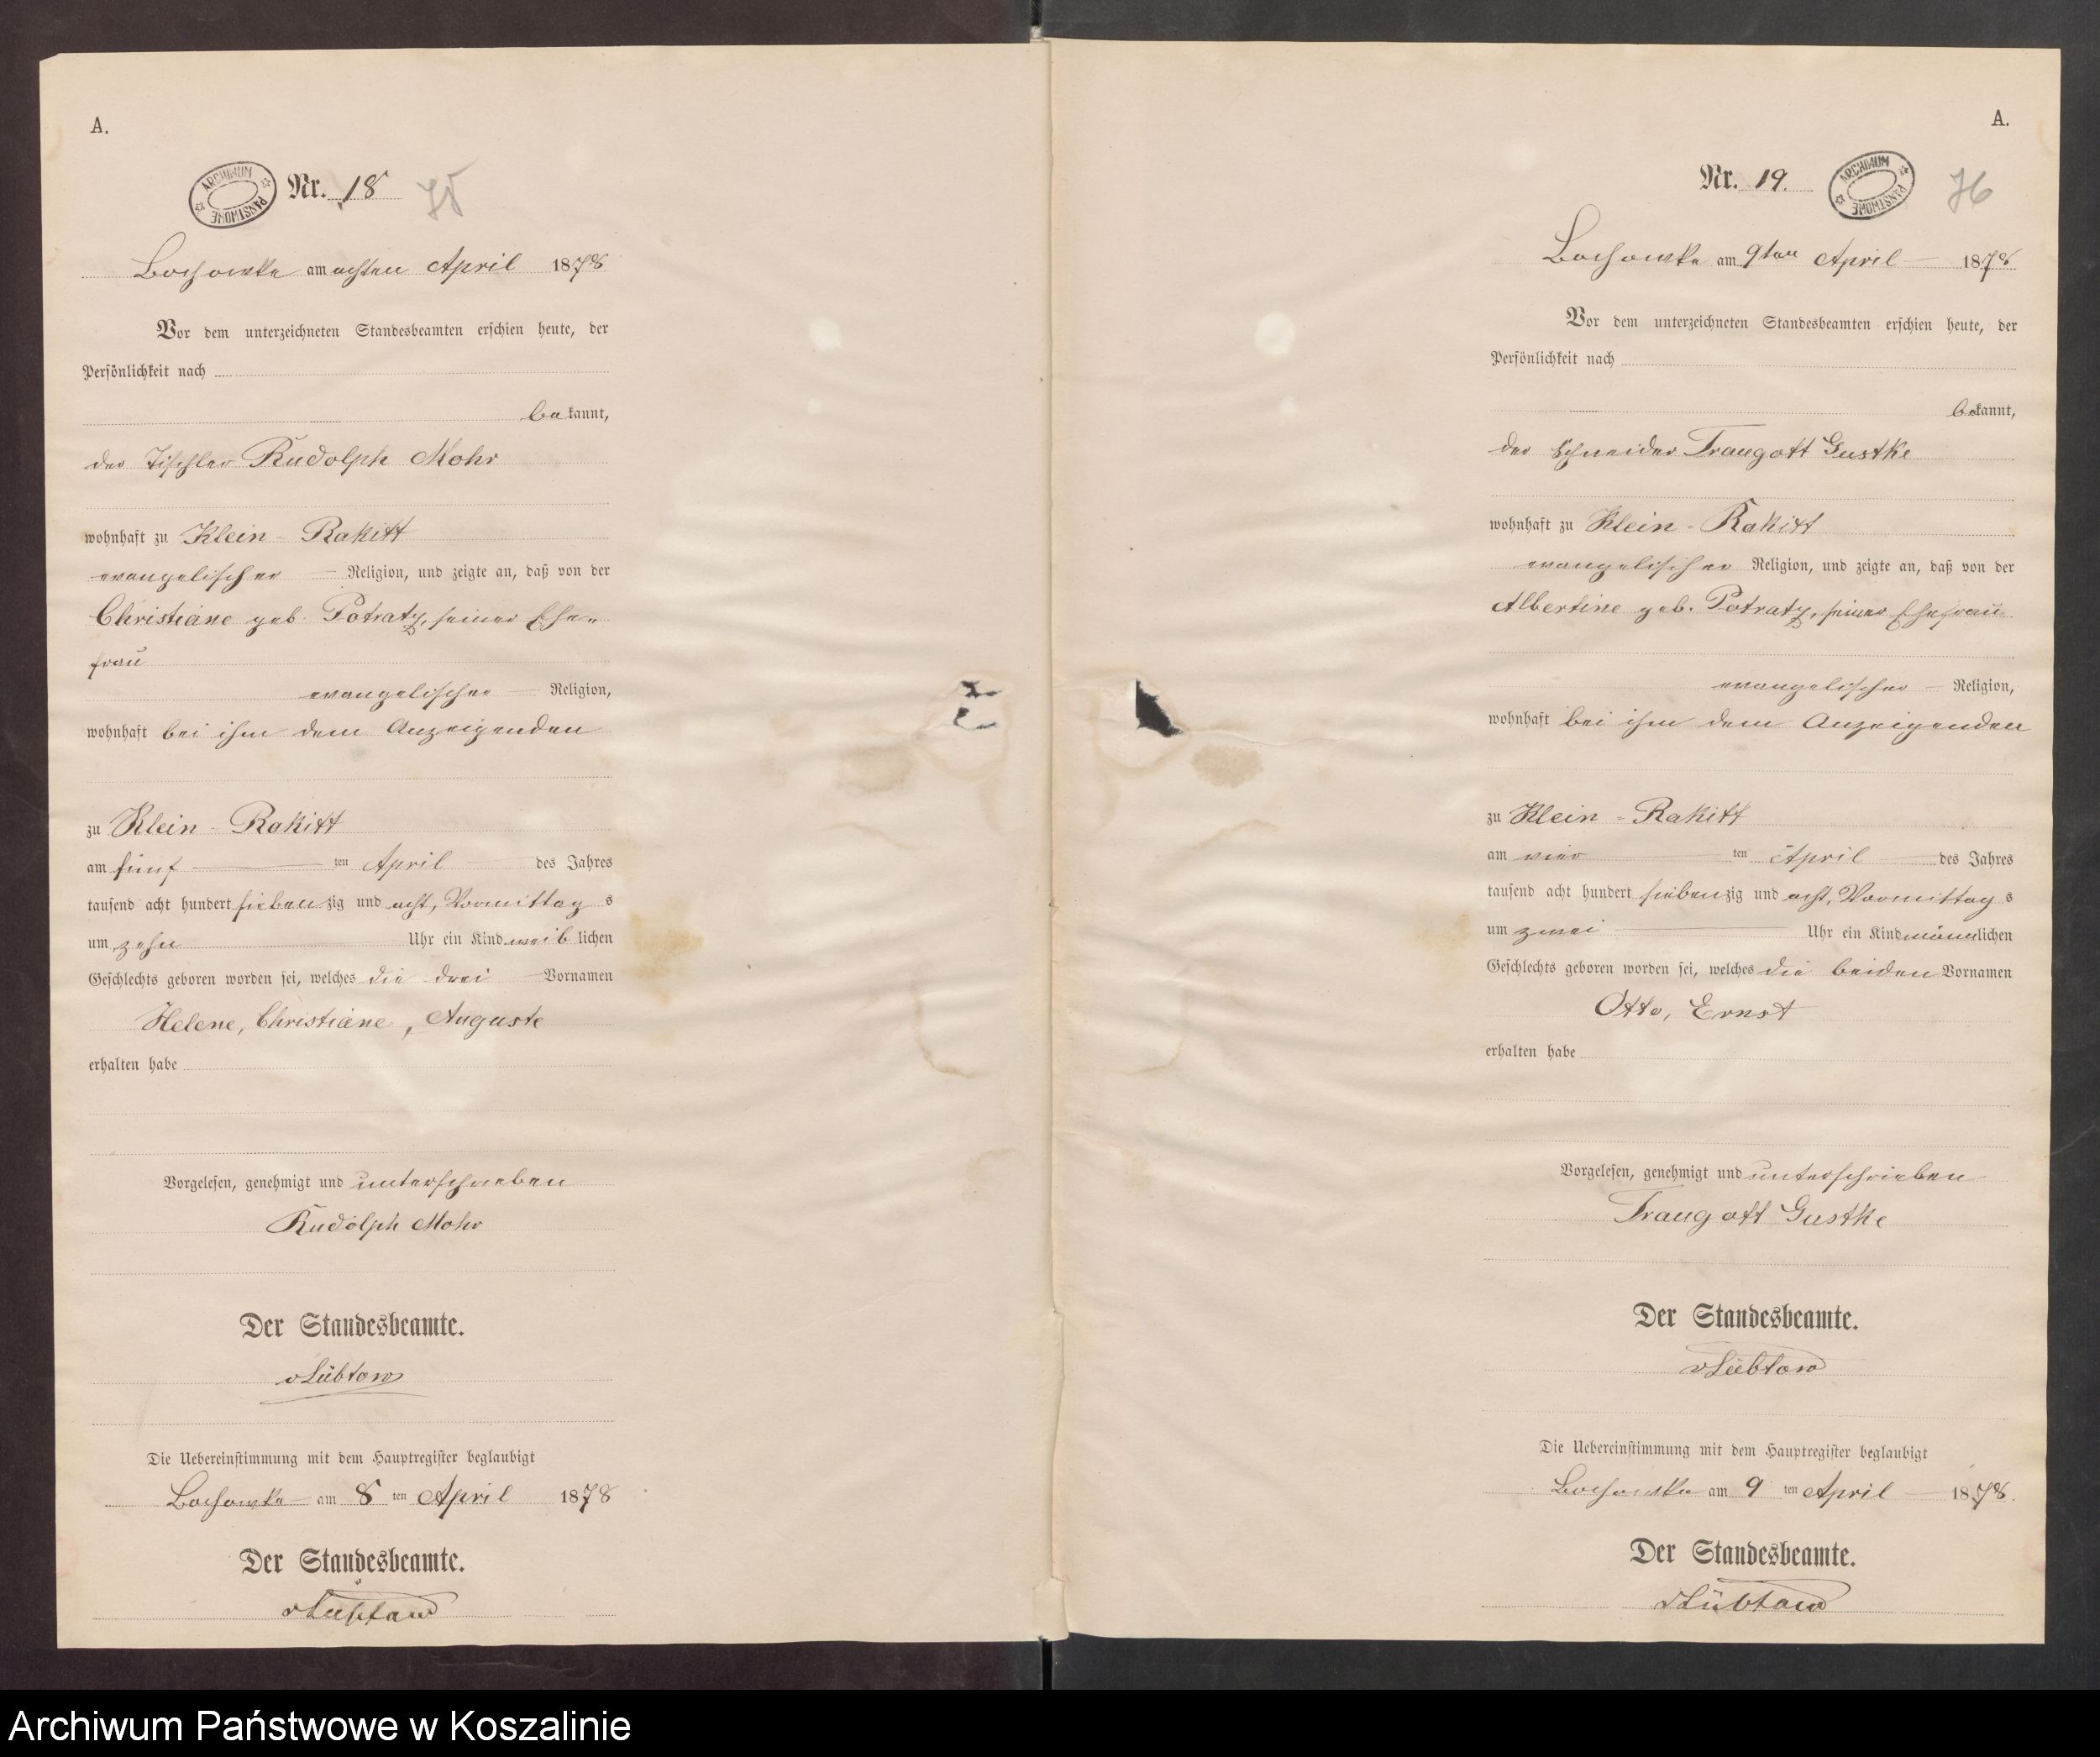 A.
ARCHIWUM PAŃSTWOWE
Nr. 18 75
Bochowke am achten April 1878
Vor dem unterzeichneten Standesbeamten erschien heute, der
Persönlichkeit nach
bekannt,
der Tischler Rudolph Mohr
wohnhaft zu Klein-Rakitt
evangelischer Religion, und zeigte an, daß von der
Christiane geb. Potratz, seiner Ehe-
frau
evangelischer Religion,
wohnhaft bei ihm dem Anzeigenden
zu Klein-Rakitt
am fünf ten April des Jahres
tausend acht hundert siebenzig und acht, Vormittags
um zehn Uhr ein Kind weiblichen
Geschlechts geboren worden sei, welches die drei Vornamen
Helene, Christiane, Auguste
erhalten habe
Vorgelesen, genehmigt und unterschrieben
Rudolph Mohr
Der Standesbeamte.
v Lübtow
Die Uebereinstimmung mit dem Hauptregister beglaubigt
Bochowke am 8 ten April 1878
Der Standesbeamte.
v Lübtow
A.
Nr. 19. ARCHIWUM PAŃSTWOWE 76
Bochowke am 9ten April 1878
Vor dem unterzeichneten Standesbeamten erschien heute, der
Persönlichkeit nach
bekannt,
der Schneider Traugott Gustke
wohnhaft zu Klein-Rakitt
evangelischer Religion, und zeigte an, daß von der
Albertine geb. Potratz, seiner Ehefrau
evangelischer Religion,
wohnhaft bei ihm dem Anzeigenden
zu Klein-Rakitt
am vier ten April des Jahres
tausend acht hundert siebenzig und acht, Vormittags
um zwei Uhr ein Kind männlichen
Geschlechts geboren worden sei, welches die beiden Vornamen
Otto, Ernst
erhalten habe
Vorgelesen, genehmigt und unterschrieben
Traugott Gustke
Der Standesbeamte.
v Lübtow
Die Uebereinstimmung mit dem Hauptregister beglaubigt
Bochowke am 9 ten April 1878.
Der Standesbeamte.
v Lübtow
Archiwum Państwowe w Koszalinie